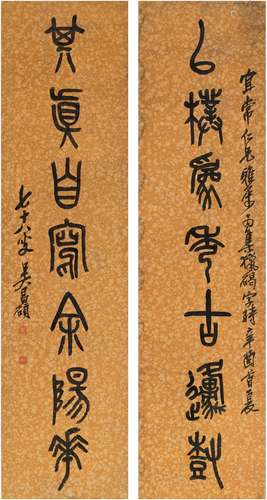 宜常仁兄雅屬集獵碣字時辛酉首夏
以樸為秀古邍尌
其真自寫余陽華
七十八叟吳昌碩